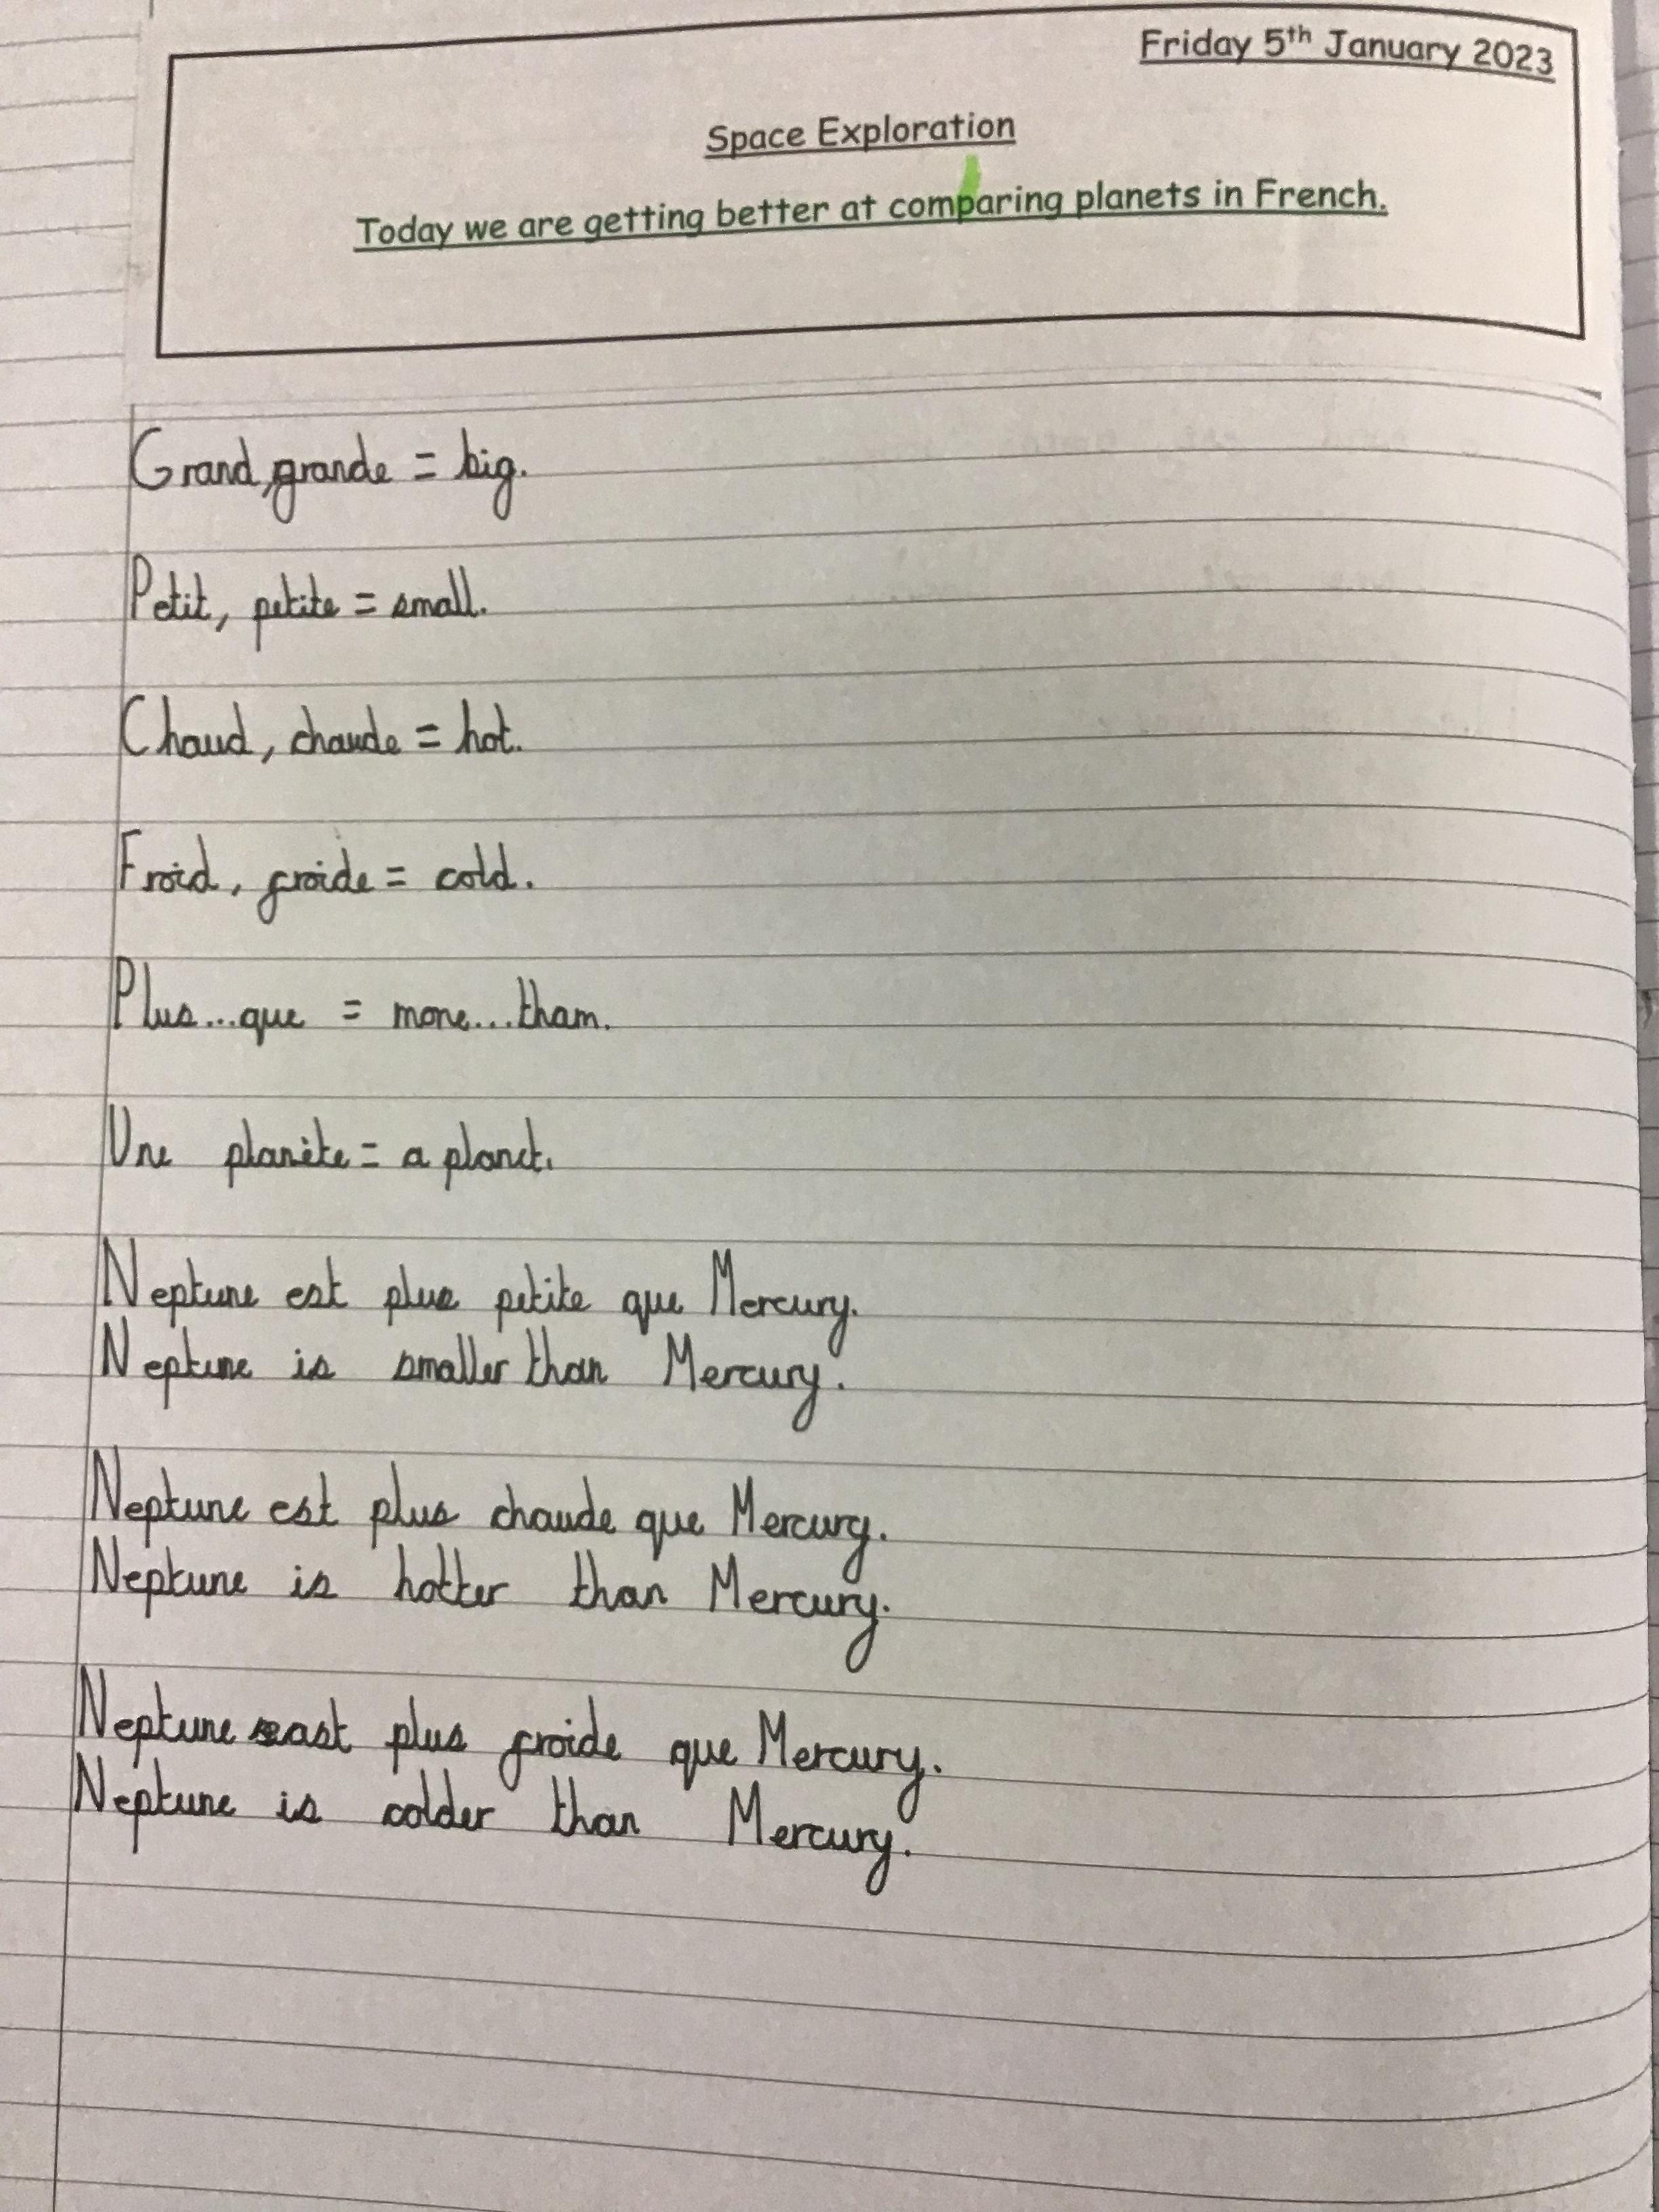 Friday 5th January 2023
Space Exploration
Today we are getting better at comparing planets in French.
Grand, grande = big.
Petit, petite = small.
Chaud, chaude = hot.
Froid, froide = cold.
Plus...que = more...than.
Une planète = a planet.
Neptune est plus petite que Mercury.
Neptune is smaller than Mercury.
Neptune est plus chaude que Mercury.
Neptune is hotter than Mercury.
Neptune est plus froide que Mercury.
Neptune is colder than Mercury.